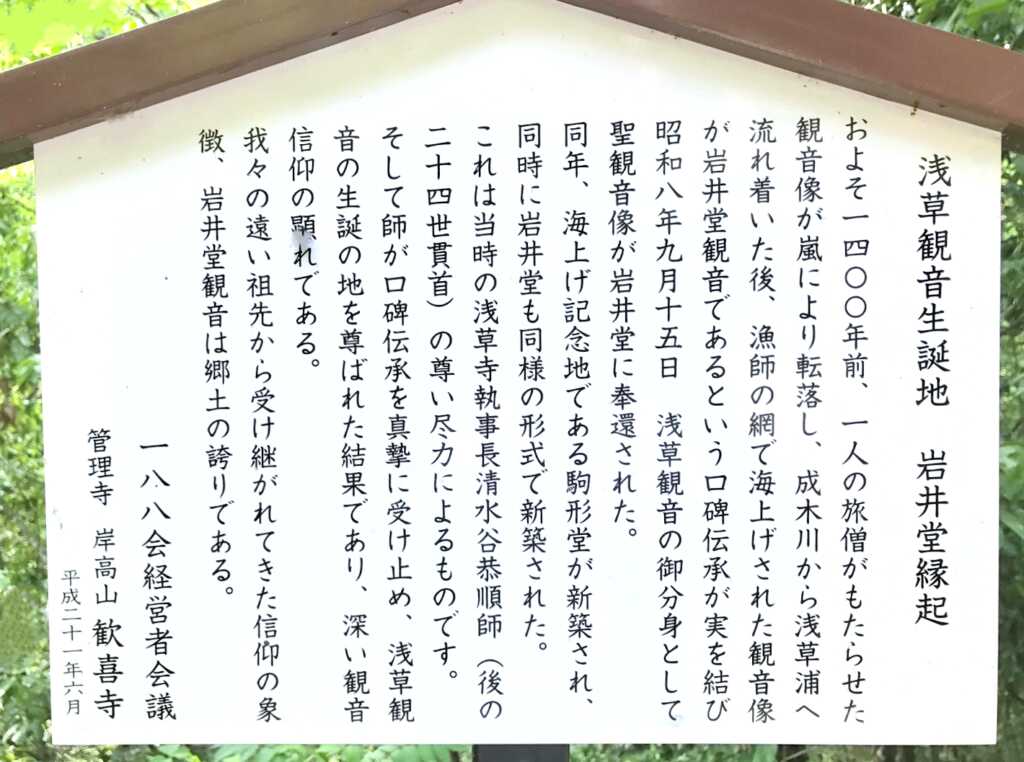 浅草観音生誕地　岩井堂縁起
およそ一四〇〇年前、一人の旅僧がもたらせた
観音像が嵐により転落し、成木川から浅草浦へ
流れ着いた後、漁師の網で海上げされた観音像
が岩井堂観音であるという口碑伝承が実を結び
昭和八年九月十五日　浅草観音の御分身として
聖観音像が岩井堂に奉還された。
同年、海上げ記念地である駒形堂が新築され、
同時に岩井堂も同様の形式で新築された。
これは当時の浅草寺執事長清水谷恭順師（後の
二十四世貫首）の尊い尽力によるものです。
そして師が口碑伝承を真摯に受け止め、浅草観
音の生誕の地を尊ばれた結果であり、深い観音
信仰の顕れである。
我々の遠い祖先から受け継がれてきた信仰の象
徴、岩井堂観音は郷土の誇りである。
一八八会経営者会議
管理寺　岸高山　歓喜寺
平成二十一年六月